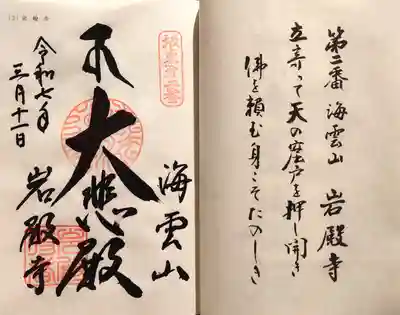 第二番 海雲山 岩殿寺
立寄って天の岩戸を押し開き
佛を頼む身こそたのしき
坂東第二番
海雲山
大悲殿
岩殿寺
令和七年
三月十一日